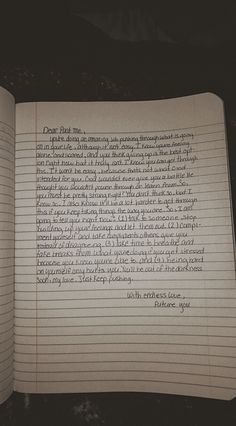 Dear Past me,
you're doing an amazing job pushing through what is going
on in your life, although it isn't easy. I know you're feeling
alone and scared, and you think giving up is the best opti-
on right now but it really isn't. I know you can get through
this. It won't be easy, because that's not what God
intended for you. God wouldn't ever give you a battle He
thought you couldn't your through
you must be pretty strong right? You don't think so, but I
know so. I also know it'll be a lot harder to get through
this if you keep taking things the way you are. So, I am
going to tell you right now: (1) talk to someone. Stop
bundling up your feelings and let them out. (2) compli-
ment yourself and take compliments others give you
instead of disagreeing. (3) take time to breathe and
take breaks from school you're doing if you get stressed
because you know you're able to. and (4) being hard
on yourself only hurts you. You'll be out of the darkness
soon, my love. Just keep pushing.
With endless love,
Future you